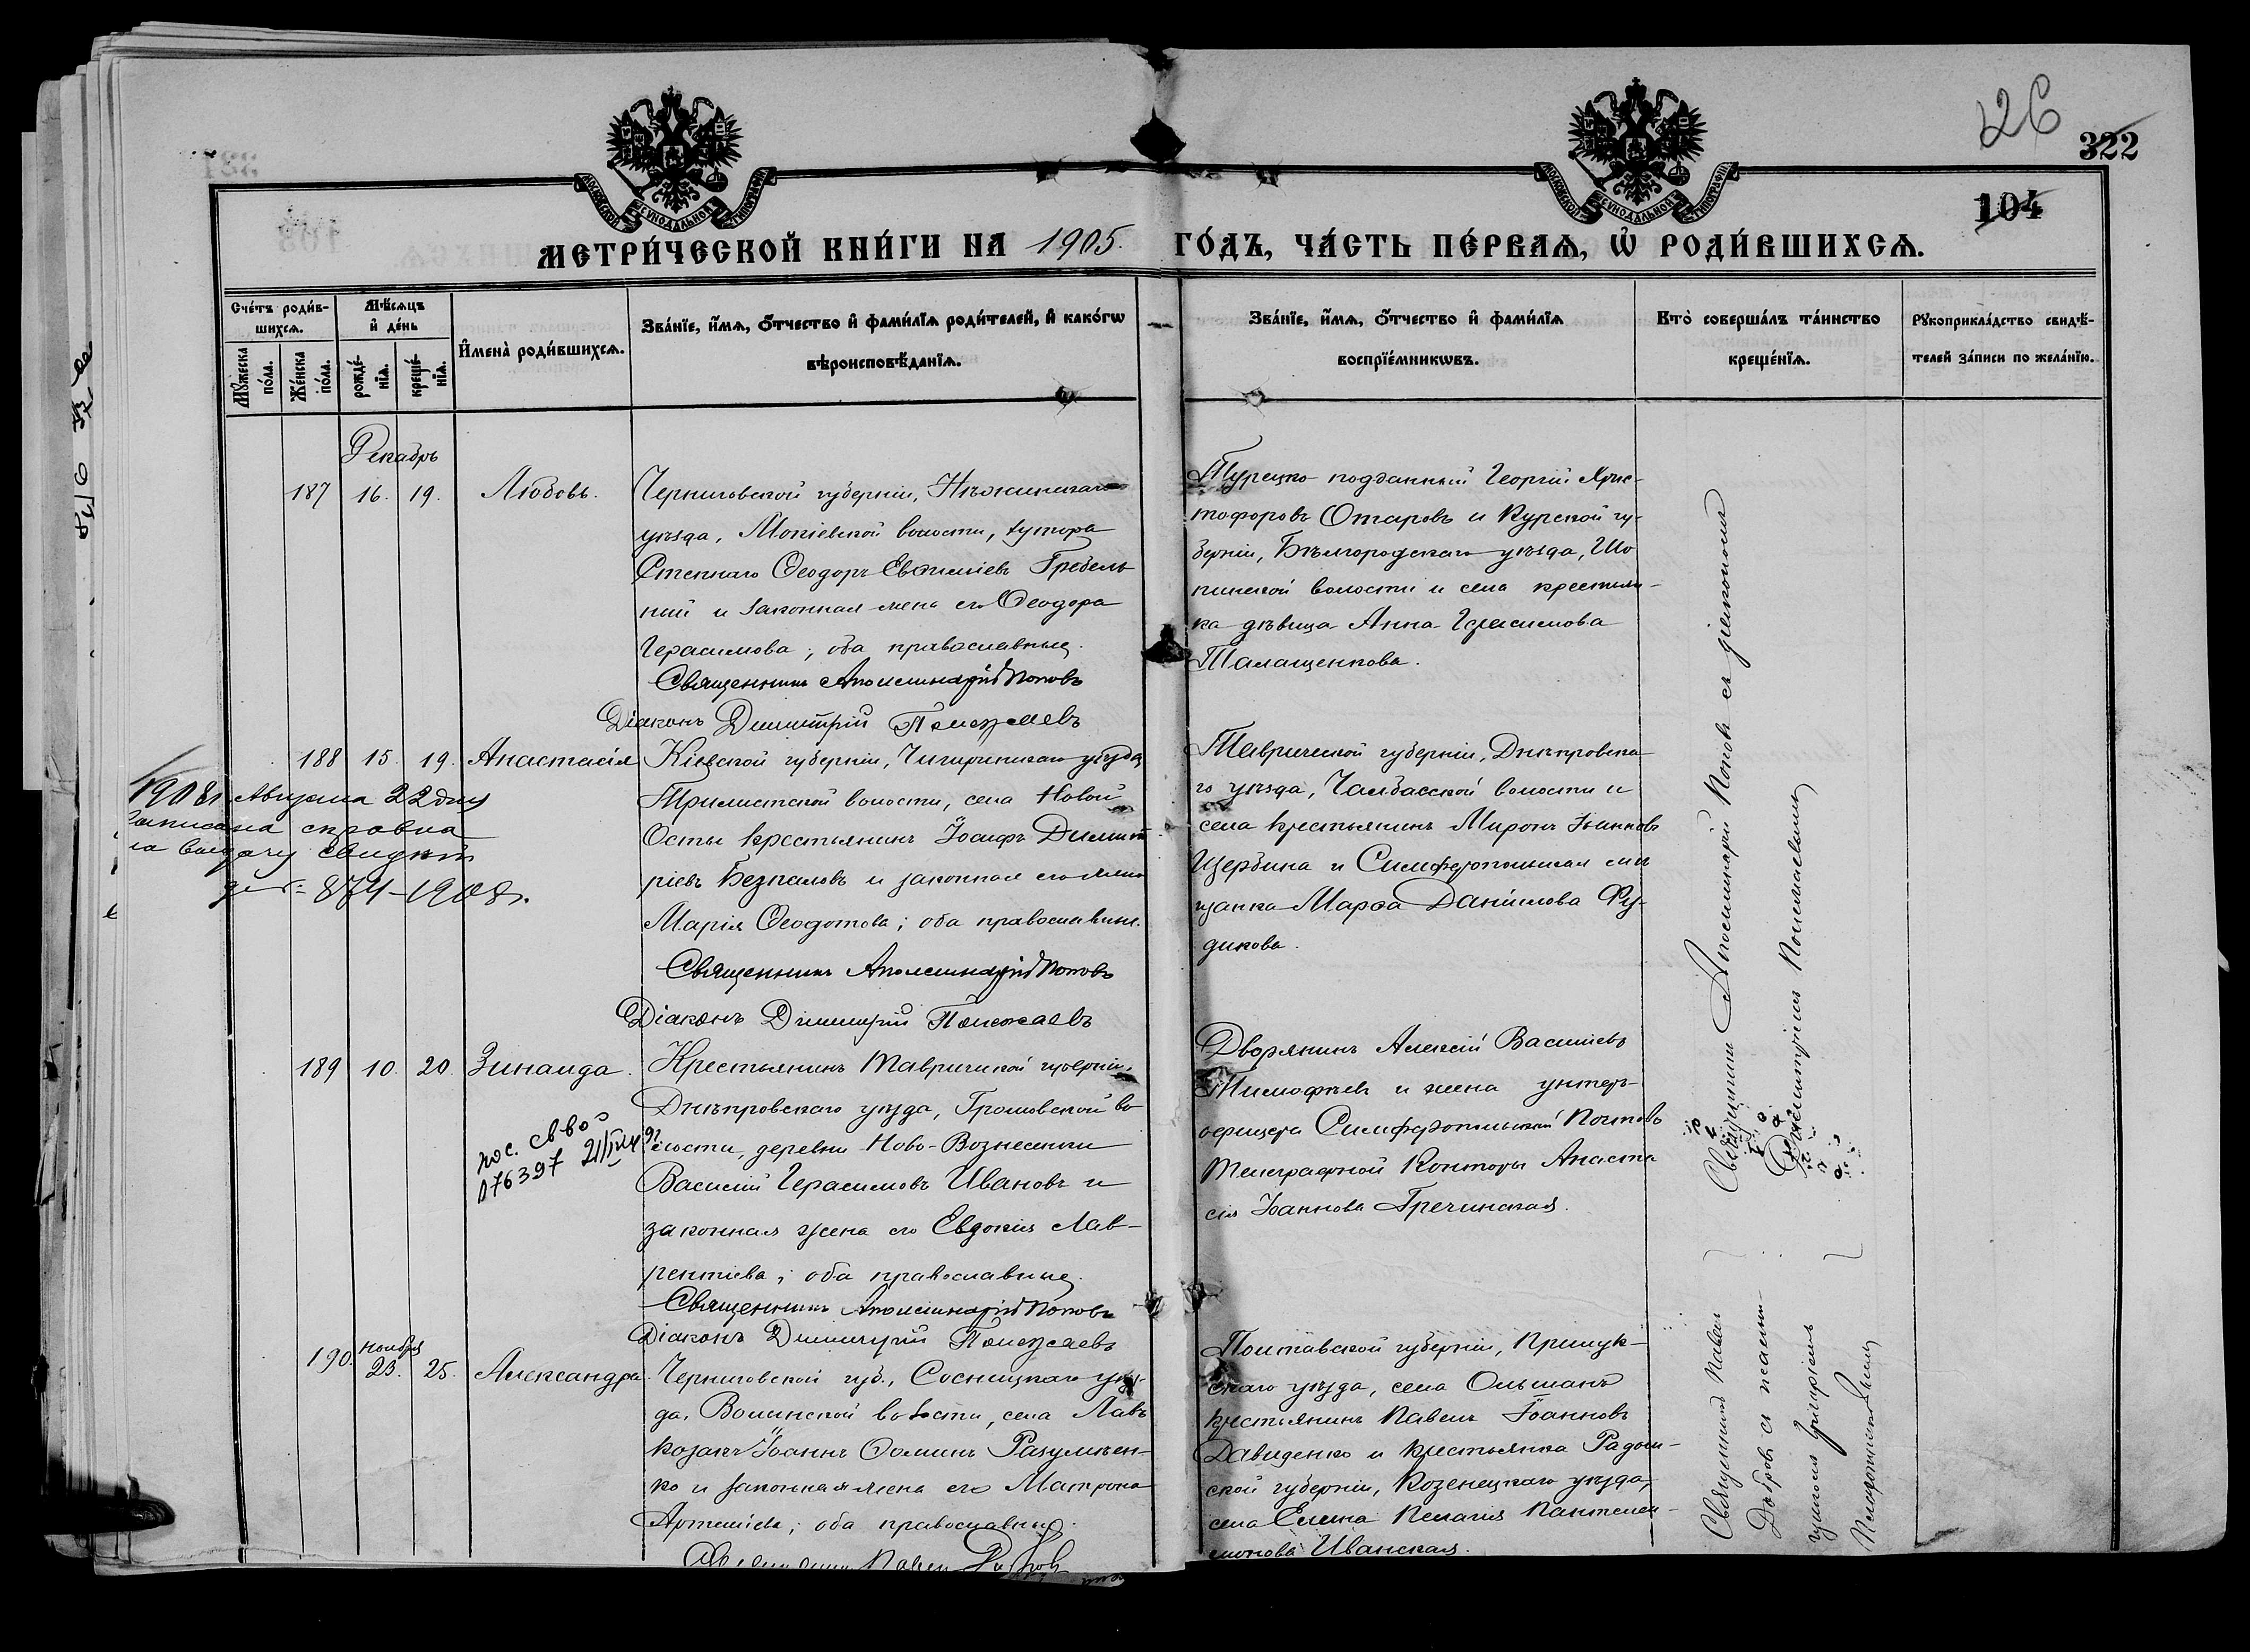 26
322
104
МОСКОВСКОЙ СУНОДАЛЬНОЙ ТИПОГРАФІИ
МОСКОВСКОЙ СУНОДАЛЬНОЙ ТИПОГРАФІИ
МЕТРИ́ЧЕСКОЙ КНИ́ГИ НА 1905. ГО́ДЪ, ЧА́СТЬ ПЕ́РВАѦ, Ѡ҆ РОДИ́ВШИХСѦ.
Сче́тъ роди́в-
шихсѧ.
Мꙋ́жеска по́ла.
Же́нска по́ла.
Мѣ́сѧцъ и҆ де́нь
рожде́-
нїѧ.
креще́-
нїѧ.
И҆мена̀ роди́вшихсѧ.
Зва́нїе, и҆́мѧ, ѻ҆́тчество и҆ фами́лїѧ роди́телей, и҆ како́гѡ
вѣроисповѣ́данїѧ.
Зва́нїе, и҆́мѧ, ѻ҆́тчество и҆ фами́лїѧ
воспрїе́мникѡвъ.
Кто̀ соверша́лъ та́инство
креще́нїѧ.
Рꙋкоприкла́дство свидѣ́-
телей за́писи по жела́нїю.
Декабрь
187 16. 19. Любовь.
Черниговской губерніи, Нѣжинскаго
уѣзда, Мокіевской волости, хутора
Степнаго Ѳеодоръ Евѳиміевъ Гребель-
ный и законная жена его Ѳеодора
Герасимова; оба православные.
Священникъ Аполлинарій Поповъ
Діаконъ Димитрій Поножаевъ
Турецко-подданный Георгій Хрис-
тофоровъ Отаровъ и Курской гу-
берніи, Бѣлгородскаго уѣзда, Шо
пинской волости и села крестьян-
ка дѣвица Анна Герасимова
Талащенкова.
188 15. 19. Анастасія
Кіевской губерніи, Чигиринскаго уѣзда
Трилистской волости, села Новой
Осты крестьянинъ Іосифъ Димит
ріевъ Безпаловъ и законная его жена
Марія Ѳеодотова; оба православные.
Священникъ Аполлинарій Поповъ
Діаконъ Димитрій Поножаевъ
Таврической губерніи, Днѣпровска-
го уѣзда, Чалбасской волости и
села крестьянинъ Миронъ Іоанновъ
Щербина и Симферопольская мѣ
щанка Марѳа Даніилова Фу-
дикова.
1908 г. Августа 22 дня
записана справка
на выдачу свидѣт
874-1908 г.
189 10. 20. Зинаида.
Крестьянинъ Таврической губерніи,
Днѣпровскаго уѣзда, Громовской во
лости, деревни Ново-Вознесенки
Василій Герасимовъ Ивановъ и
законная жена его Евдокія Лав-
рентіева; оба православные.
Священникъ Аполлинарій Поповъ
Діаконъ Димитрій Поножаевъ
076397
Дворянинъ Алексій Васильевъ
Тимофѣевъ и жена унтеръ-
офицера Симферопольской Почтово
Телеграфной Конторы Анаста
сія Іоаннова Гречинская.
190. Ноября 23. 25. Александра.
Черниговской губ., Сосницкаго уѣз-
да, Волинской волости, села Лавъ
козакъ Іоаннъ Ѳоминъ Разумѣен-
ко и законная жена его Матрона
Артеміева; оба православные.
Священникъ Павелъ Добровъ
Полтавской губерніи, Прилук-
скаго уѣзда, села Ольшанъ
крестьянинъ Павелъ Іоанновъ
Давиденко и крестьянка Радом-
ской губерніи, Козенецкаго уѣзда,
села Елена Пелагія Пантелеи-
монова Иванская.
Священникъ Аполлинарій Поповъ съ діакономъ
Димитріемъ Поножаевымъ
Священникъ Павелъ
Добровъ съ псалом-
щикомъ Григоріемъ